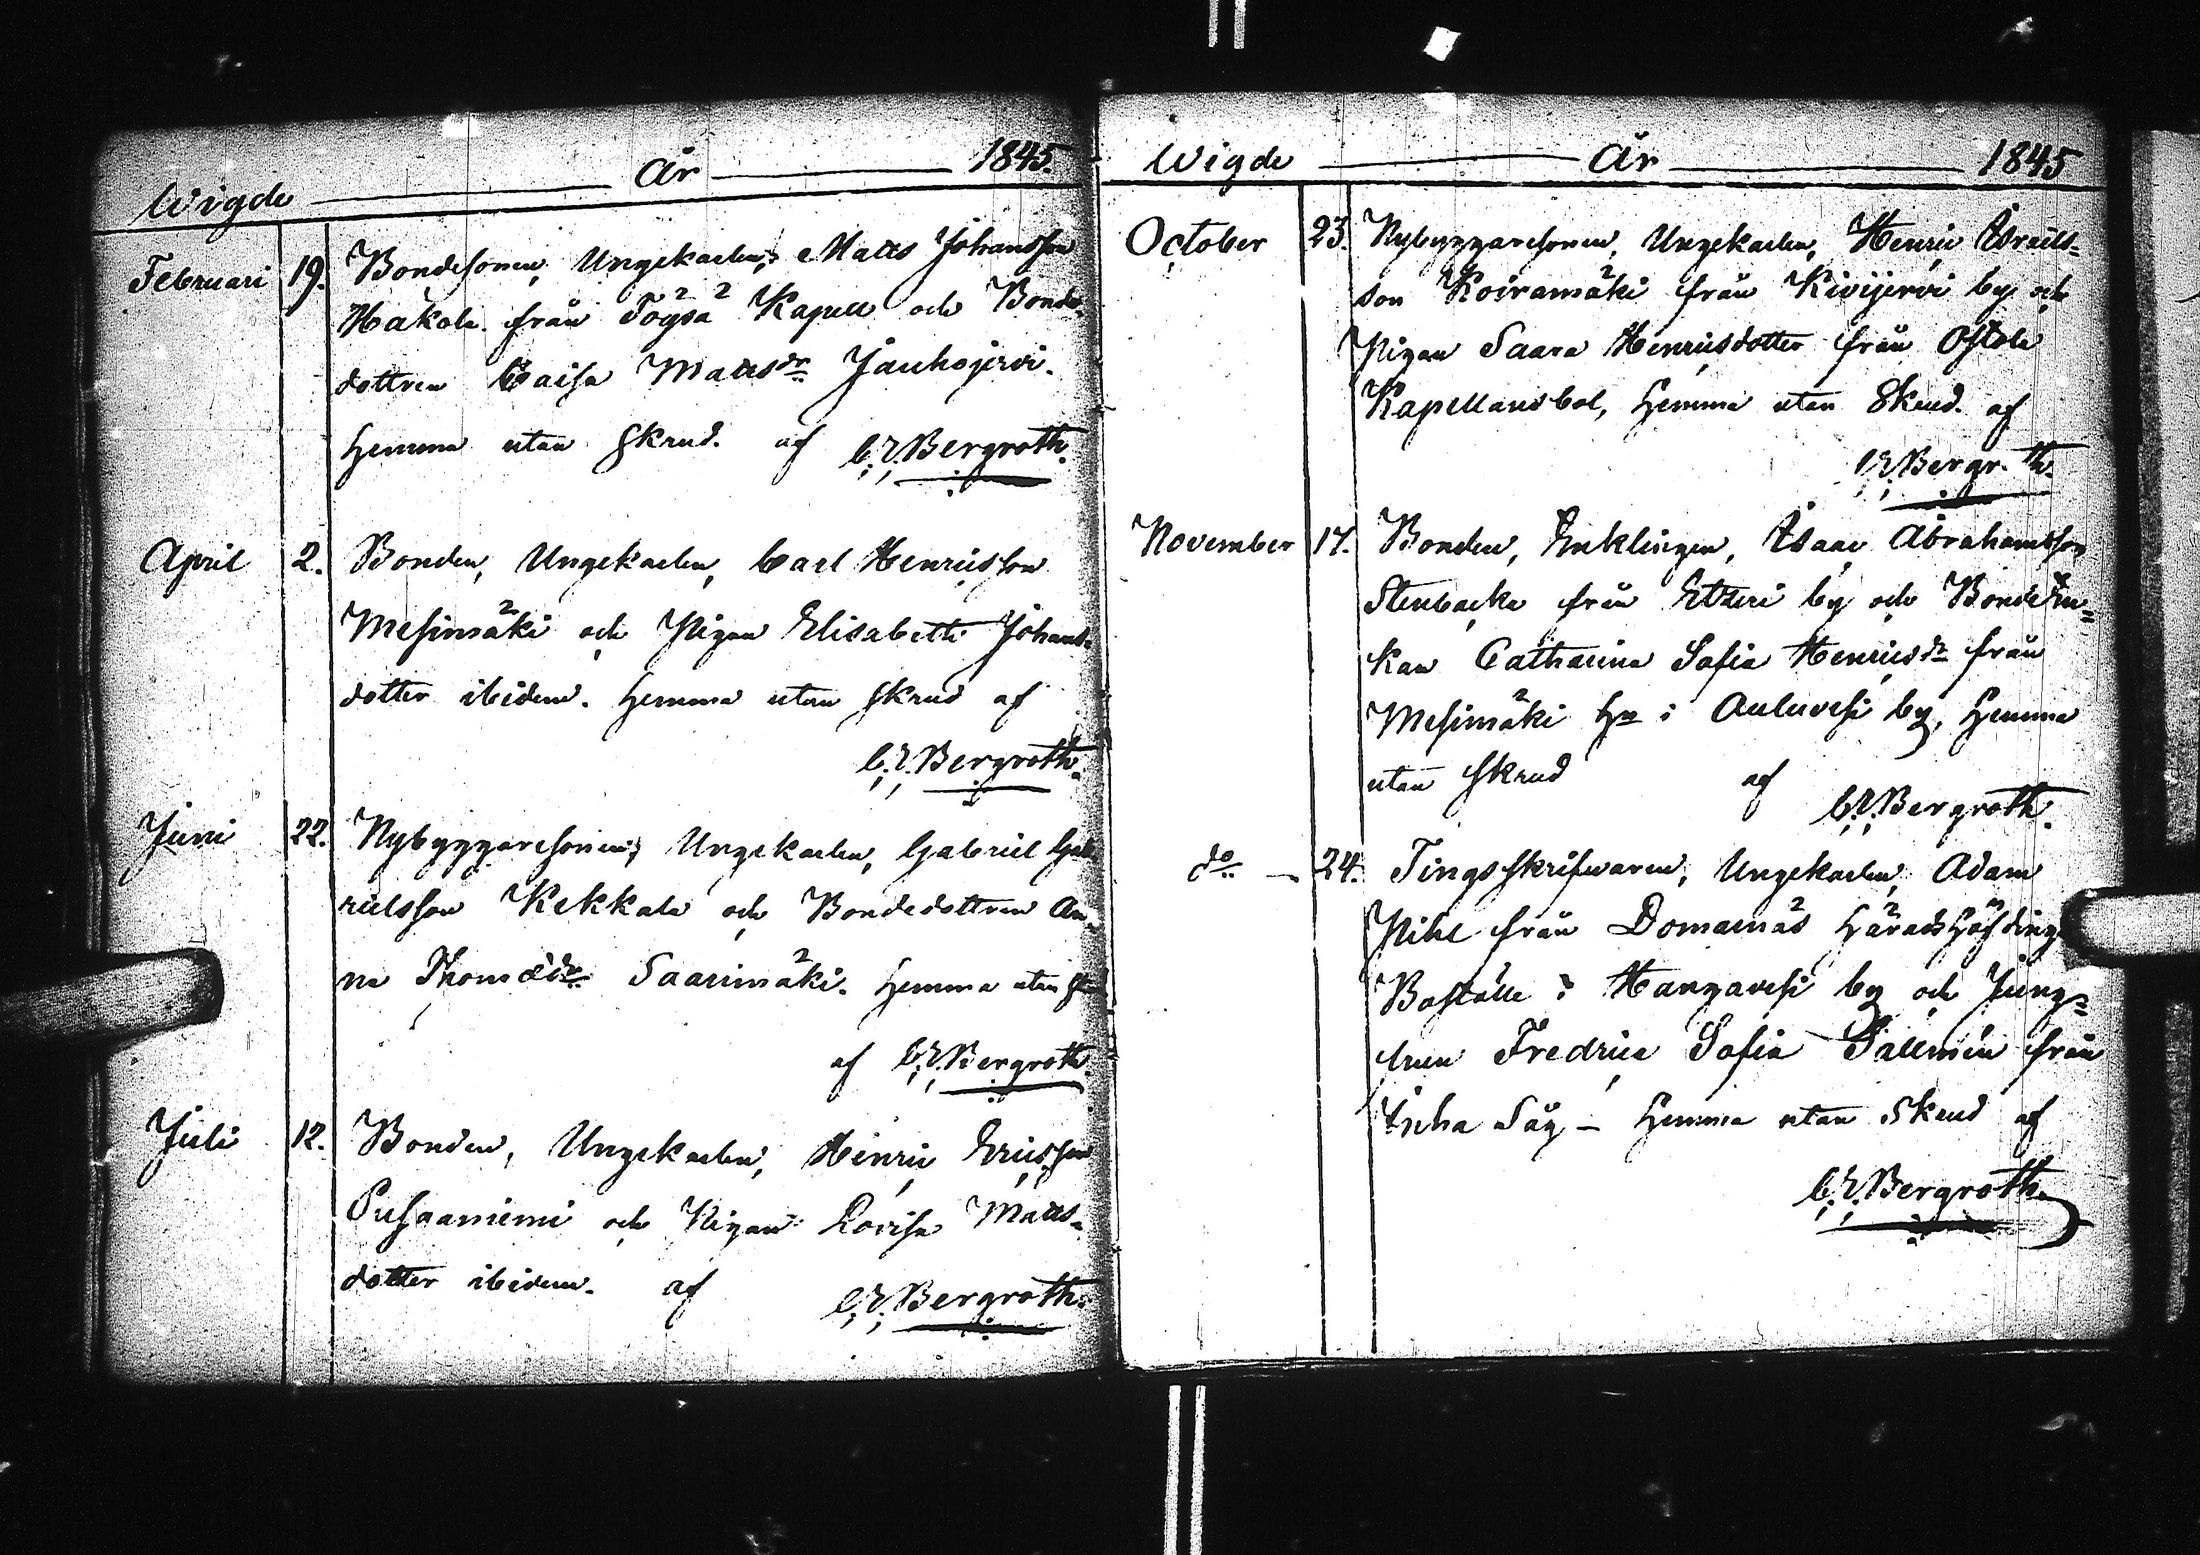 Wigde År 1845.
Februari 19. Bondesonen, Ungekarlen, Matts Johansson
Hakola från Töysä Kapell och Bonde-
dottren Caisa Mattsdr Jauhojervi.
hemma utan skrud. af C. E. Bergroth.
April 2. Bonden, Ungekarlen, Carl Henricsson
Mesimäki och Pigan Elisabeth Johans-
dotter ibidem. hemma utan skrud af
C. E. Bergroth.
Juni 22. Nybyggaresonen, Ungekarlen, Gabriel Gab-
rielsson Kekkala och Bondedottren An-
na Thomædr Saarimäki. hemma utan
af C. E. Bergroth.
Juli 12. Bonden, Ungekarlen, Henric Ericsson
Pusaaniemi och Pigan Lovisa Matts-
dotter ibidem. af C. E. Bergroth.
Wigde År 1845
October 23. Nybyggaresonen, Ungekarlen, Henric Isräels-
son Koiramäki från Kivijervi by och
Pigan Saara Henricsdotter från Ostola
Kapellansbol, hemma utan Skrud. af
C. E. Bergroth.
November 17. Bonden, Enklingen, Isaac Abrahamsson
Stenbacka från Etzeri by och Bonde En-
kan Catharina Sofia Henricsdr från
Mesimäki hn i Auluvesi by, hemma
utan skrud af C. E. Bergroth.
do — 24. Tingsskrifvaren, Ungekarlen, Adam
Pihl från Domarnäs Häradshöfding
Boställe i Hangavesi by och Jung-
frun Fredrica Sofia Sallmén från
Inha Såg — hemma utan skrud af
C. E. Bergroth.